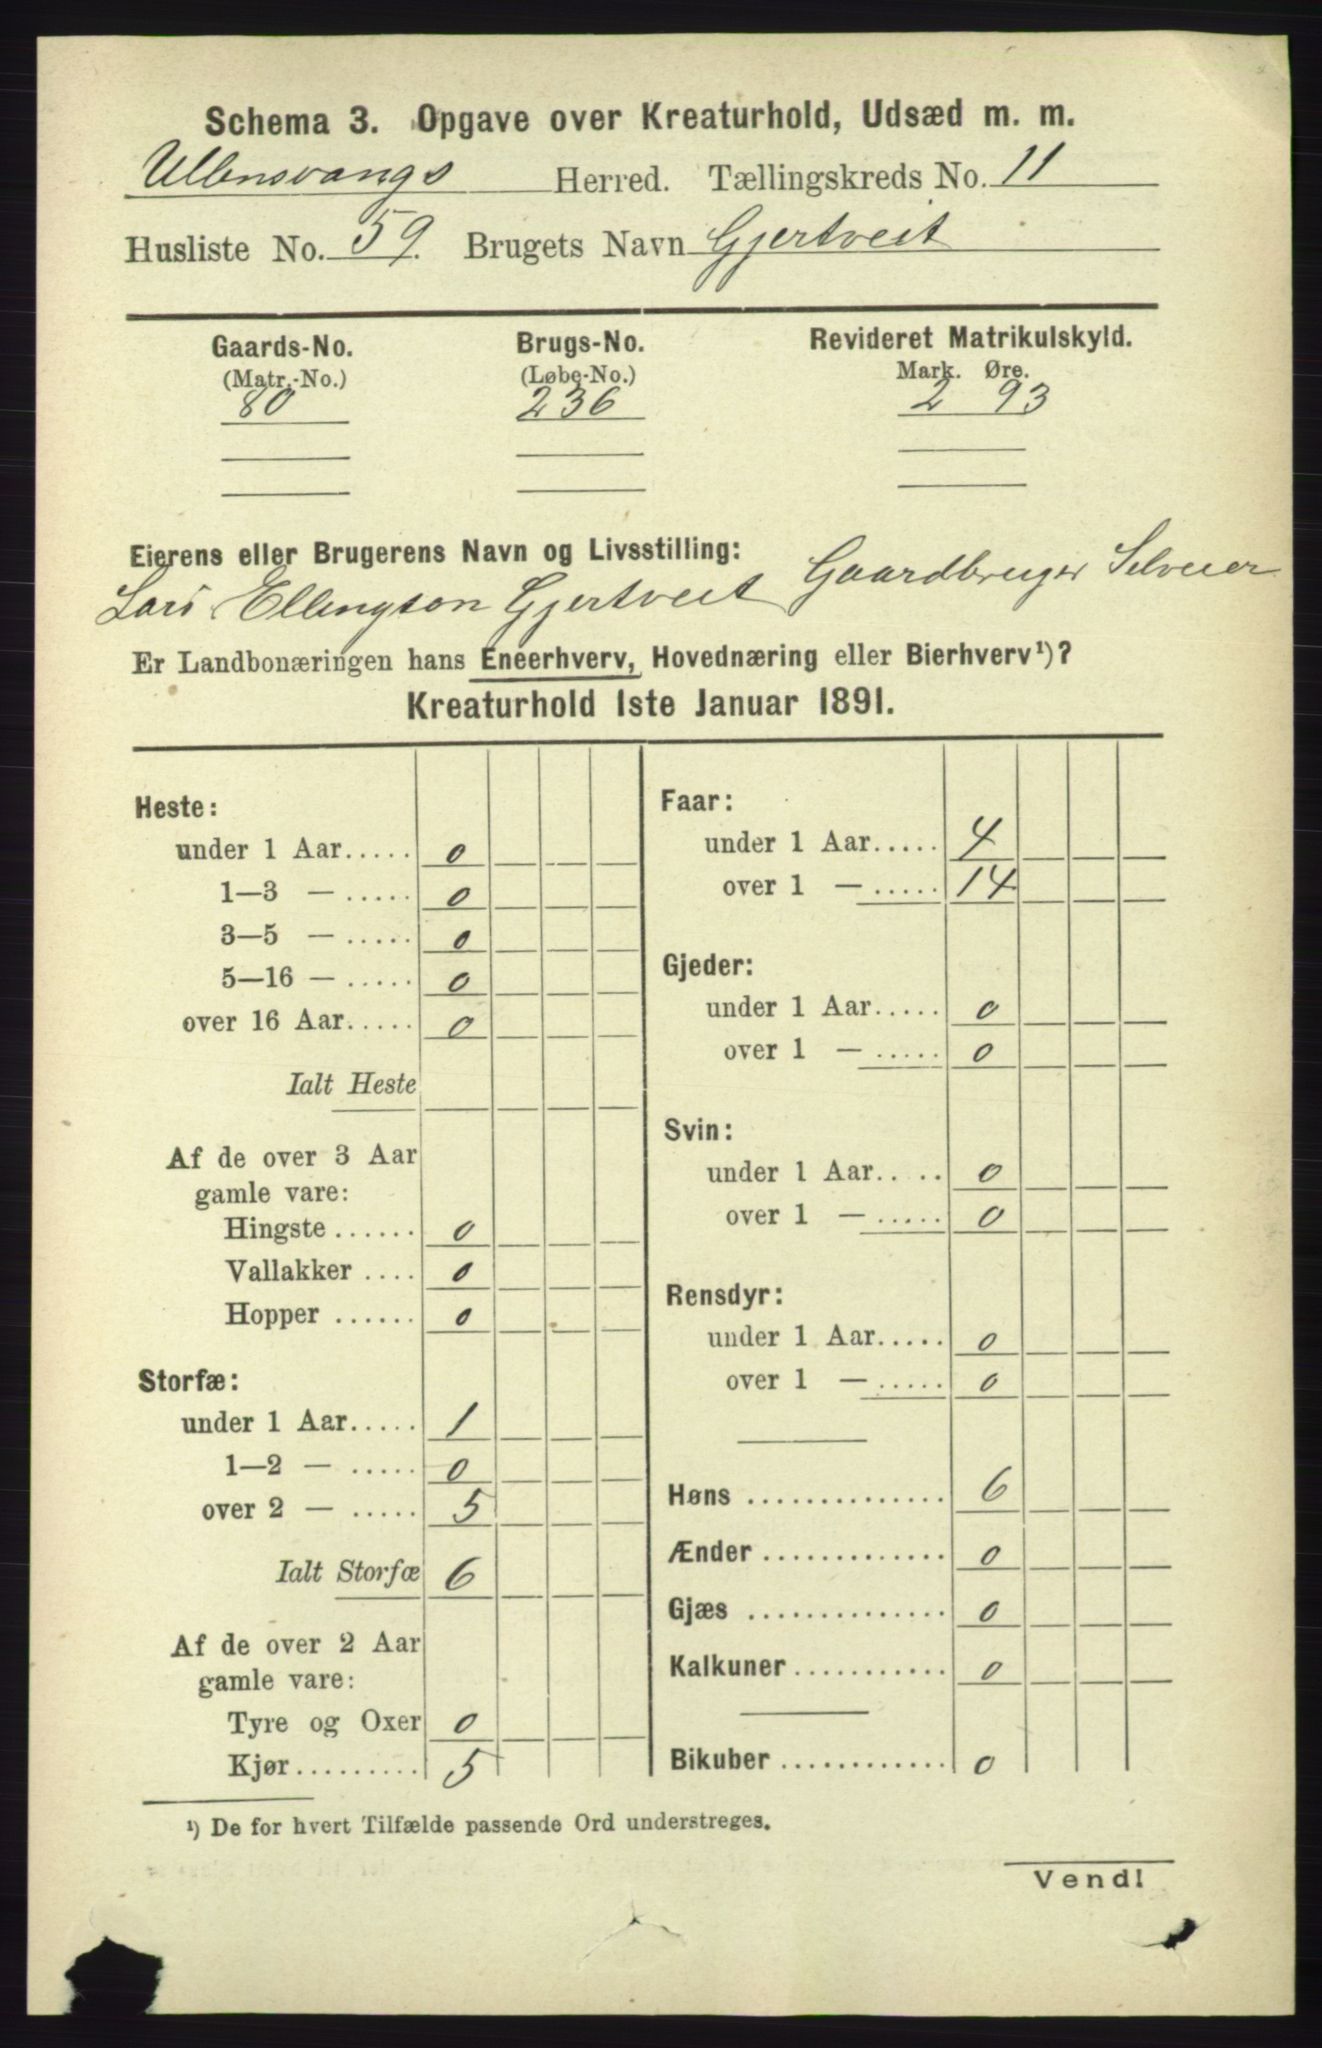 Schema 3. Opgave over Kreaturhold, Udsæd m. m.
Ullensvangs Herred. Tællingskreds No. 11
Husliste No. 59. Brugets Navn Gjertveit
Gaards-No. Brugs-No. Revideret Matrikulskyld.
(Matr.-No.) (Løbe-No.) Mark. Øre.
80 236 2 93
Eierens eller Brugerens Navn og Livsstilling:
Lars Ellingson Gjertveit Gaardbruger Selveier
Er Landbonæringen hans Eneerhverv, Hovednæring eller Bierhverv¹)?
Kreaturhold 1ste Januar 1891.
Heste:
under 1 Aar..... 0
1—3 — ..... 0
3—5 — ..... 0
5—16 — ..... 0
over 16 Aar..... 0
Ialt Heste
Af de over 3 Aar
gamle vare:
Hingste ...... 0
Vallakker .... 0
Hopper ...... 0
Storfæ:
under 1 Aar..... 1
1—2 — ..... 0
over 2 — ..... 5
Ialt Storfæ 6
Af de over 2 Aar
gamle vare:
Tyre og Oxer 0
Kjør......... 5
Faar:
under 1 Aar..... 4
over 1 — ..... 14
Gjeder:
under 1 Aar..... 0
over 1 — ..... 0
Svin:
under 1 Aar..... 0
over 1 — ..... 0
Rensdyr:
under 1 Aar..... 0
over 1 — ..... 0
Høns .............. 6
Ænder ............. 0
Gjæs .............. 0
Kalkuner........... 0
Bikuber ............ 0
¹) De for hvert Tilfælde passende Ord understreges.
Vend!